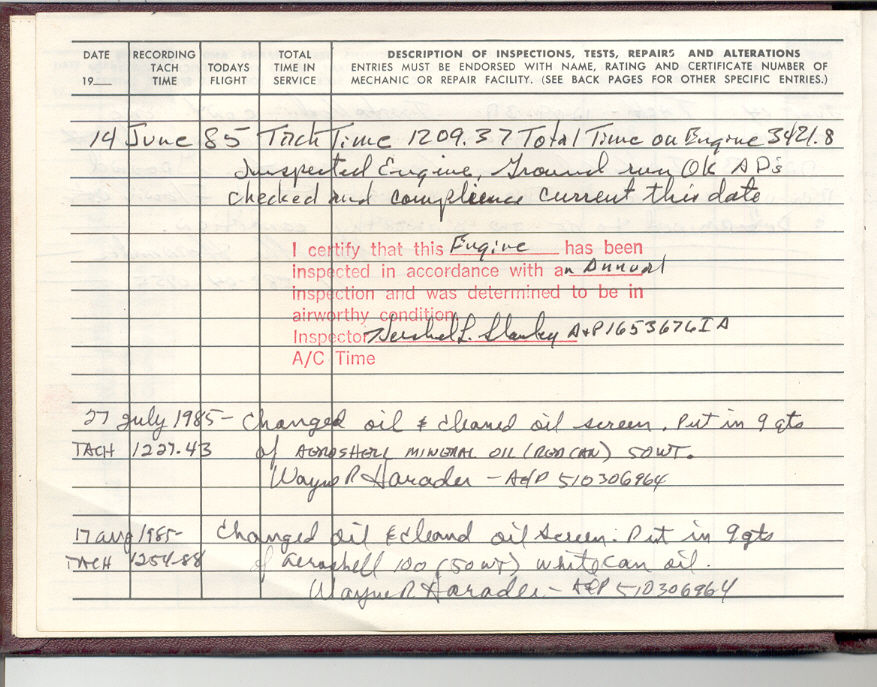 DATE RECORDING TODAYS TOTAL DESCRIPTION OF INSPECTIONS, TESTS, REPAIRS AND ALTERATIONS
19__ TACH TIME FLIGHT TIME IN SERVICE ENTRIES MUST BE ENDORSED WITH NAME, RATING AND CERTIFICATE NUMBER OF
MECHANIC OR REPAIR FACILITY. (SEE BACK PAGES FOR OTHER SPECIFIC ENTRIES.)
14 June 85 Tach Time 1209.37 Total Time on Engine 3421.8
Inspected Engine, Ground run OK AD's
checked and complience current this date
I certify that this Engine has been
inspected in accordance with an Annual
inspection and was determined to be in
airworthy condition.
Inspector Hershel L. Stanley A&P1653676IA
A/C Time
27 July 1985- Changed oil & cleaned oil screen. Put in 9 qts
TACH 1227.43 of AEROSHELL MINERAL OIL (RED CAN) 50WT.
Wayne R Harader - A&P 510306964
17 aug 1985- Changed oil & cleand oil screen. Put in 9 qts
TACH 1254.88 of Aeroshell 100 (50WT) white can oil.
Wayne R Harader - A&P 510306964